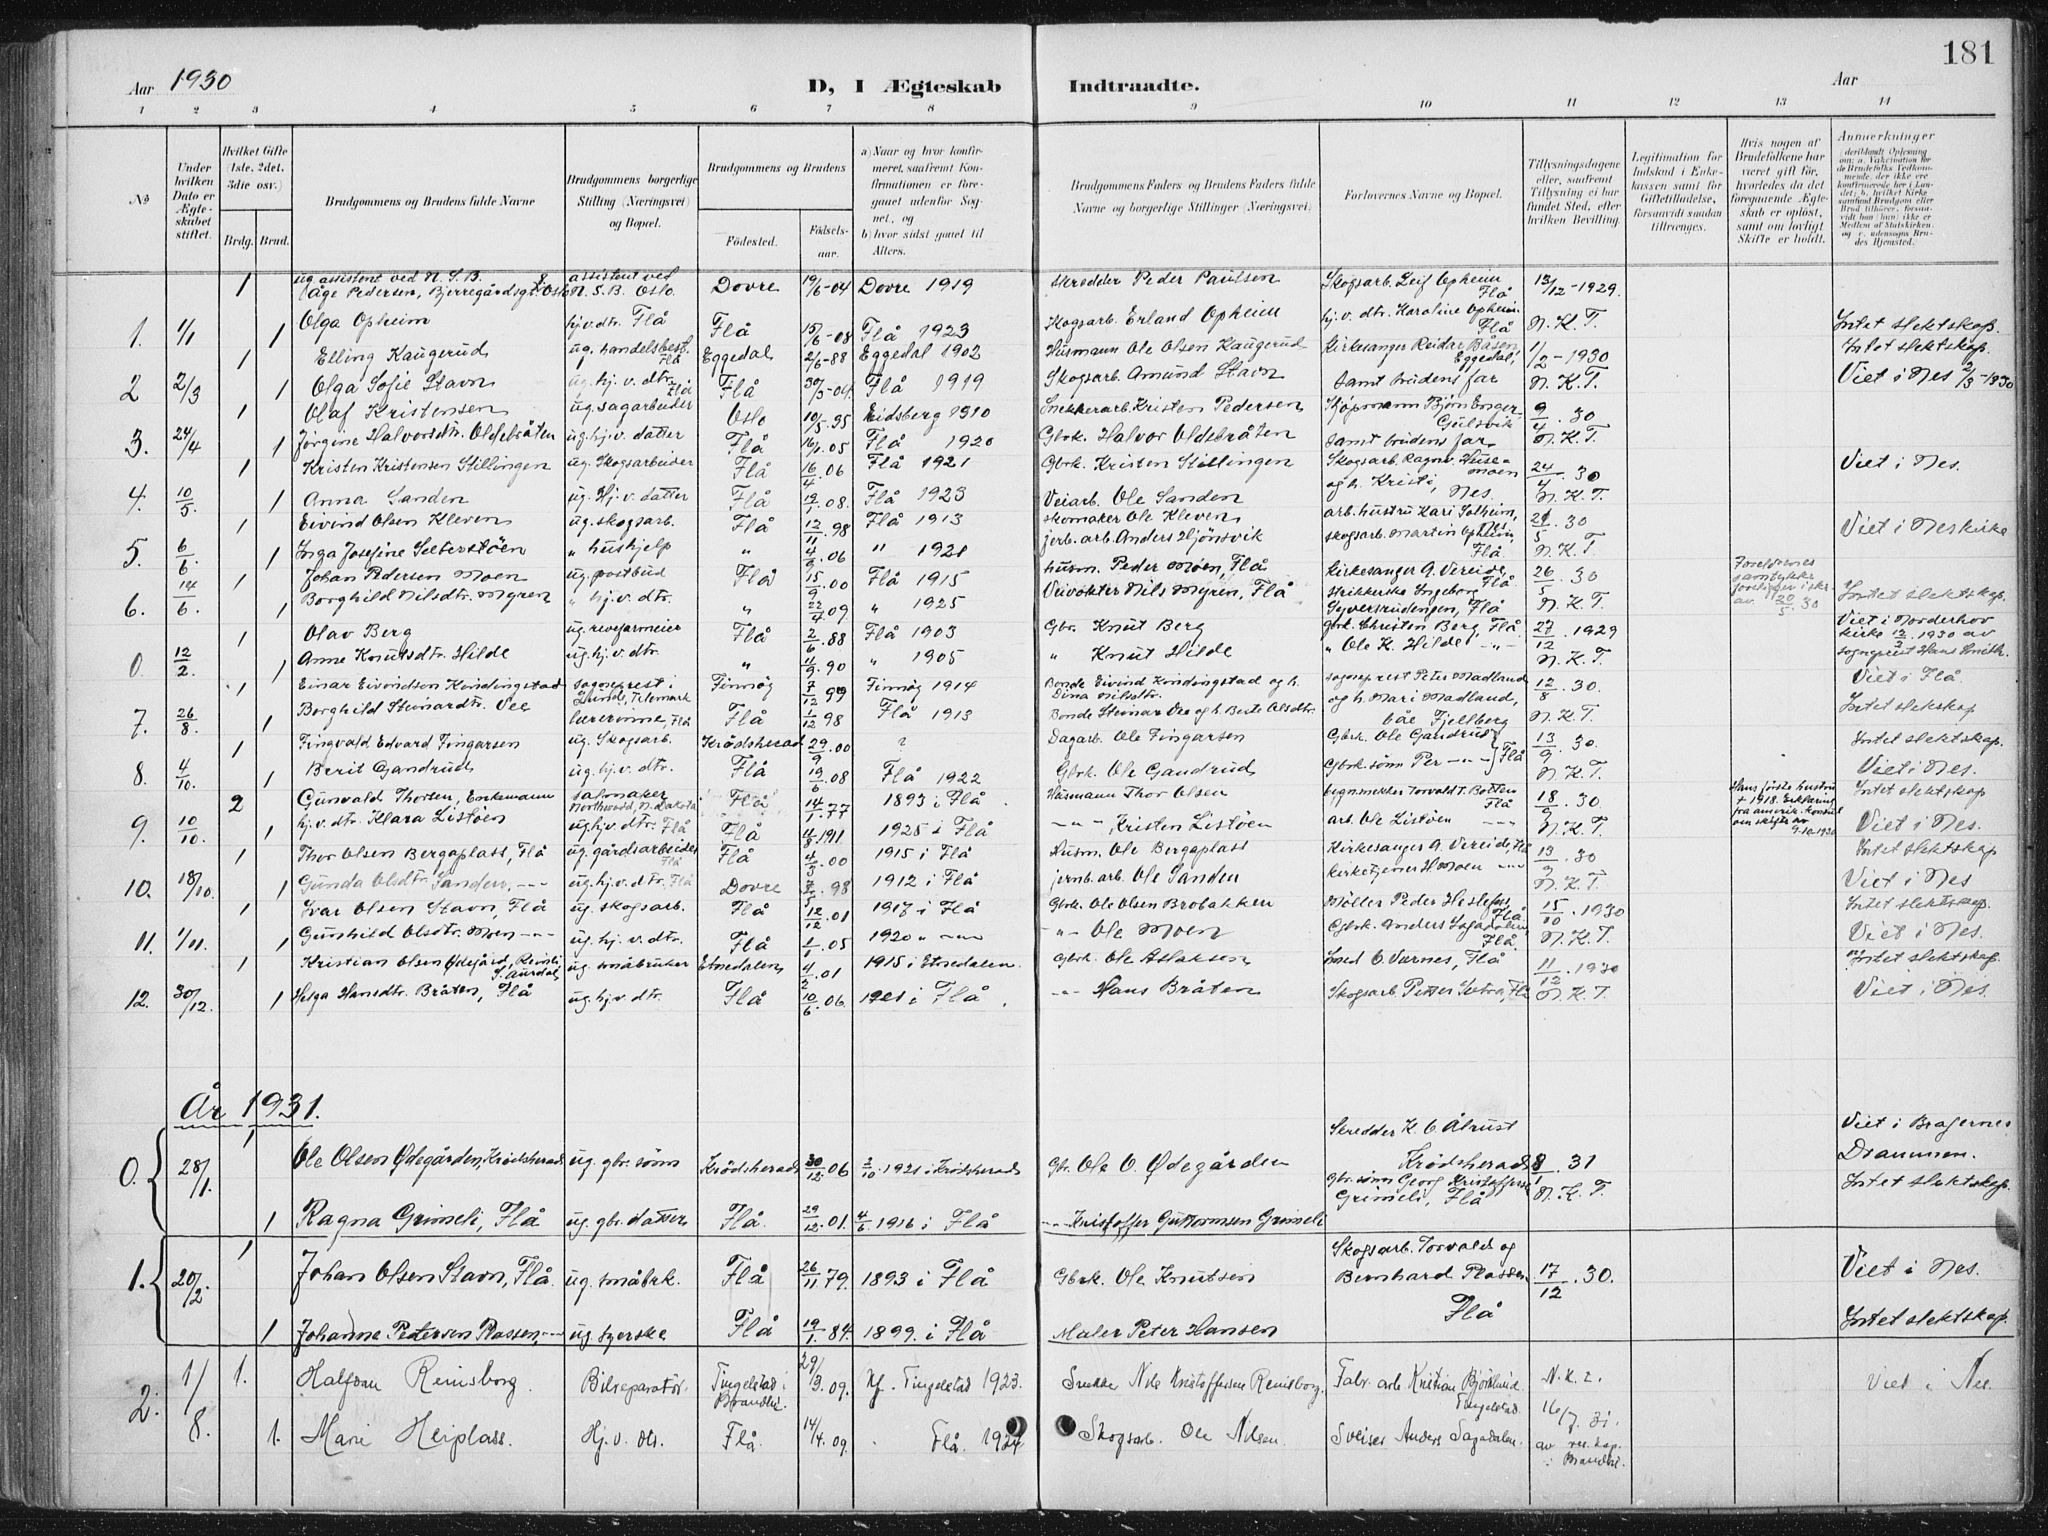 181
Aar 1930
D, I Ægteskab Indtraadte.
Aar
1 2 3 4 5 6 7 8 9 10 11 12 13 14
No
Under hvilken Dato er Ægteskabet stiftet.
Hvilket Gifte (1ste, 2det, 3die osv.)
Brdg. Brud.
Brudgommens og Brudens fulde Navne
Brudgommens borgerlige Stilling (Næringsvei) og Bopæl.
Brudgommens og Brudens
Fødested.
Fødselsaar.
a) Naar og hvor konfirmeret, saafremt Konfirmationen er foregaaet udenfor Sognet, og
b) hvor sidst gaaet til Alters.
Brudgommens Faders og Brudens Faders fulde Navne og borgerlige Stillinger (Næringsvei)
Forlovernes Navne og Bopæl.
Tillysningsdagene eller, saafremt Tillysning ei har fundet Sted, efter hvilken Bevilling.
Legitimation for Indskud i Enkekassen samt for Giftetilladelse, forsaavidt saadan tiltrænges.
Hvis nogen af Brudefolkene har været gift før, hvorledes da det foregaaende Ægteskab er opløst, samt om lovligt Skifte er holdt.
Anmerkninger
1 ug. assistent ved N.S.B. Åge Pedersen, Bjerregårdsgt. Oslo assistent ved N.S.B. Oslo. Dovre 19/6-04 Dovre 1919 Skredder Peder Paulsen Skogsarb. Leif Opheim Flå 13/12-1929.
1. 1/1 1 Olga Opheim hj.v. dtr. Flå Flå 15/6-08 Flå 1923 Skogsarb. Erland Opheim hj.v. dtr. Karoline Opheim Flå N.K.T. Intet slektskap.
1 Elling Kaugerud ug. handelsbest. Flå Eggedal 2/6-88 Eggedal 1902 Husmann Ole Olsen Kaugerud Kirkesanger Reidar Båsen Eggedal, 11/2-1930 Intet slektskap.
2 2/3 1 Olga Sofie Stavn ug. hj.v. dtr. Flå Flå 30/3-04. Flå 1919 Skogsarb. Amund Stavn samt brudens far N.K.T. Viet i Nes 2/3-1930
1 Olaf Kristensen ug. sagarbeider Oslo 10/5-95 Eidsberg 1910 Snekkerarb. Kristen Pedersen Kjøpmann Bjørn Enger Gulsvik 9/4.30
3. 24/4 1 Jørgine Halvorsdtr. Oldebråten ug. hj.v. datter Flå 16/1.05 Flå 1920 Gbrk. Halvor Oldebråten samt brudens far N.K.T.
1 Kristen Kristensen Stillingen ug. Skogsarbeider Flå 16/4.06 Flå 1921 Gbrk. Kristen Stillingen Skogsarb. Ragnv. Husemoen 24/4.30 Viet i Nes.
4. 10/5. 1 Anna Sanden ug. Hj.v. datter Flå 19/1.08. Flå 1923 Veiarb. Ole Sanden og h. Kristi, Nes. N.K.T.
1 Eivind Olsen Kleven ug. skogsarb. Flå 12/11.98 Flå 1913 skomaker Ole Kleven arb. hustru Kari Solheim, Nes 21/5.30 Viet i Nes kirke
5. 6/6. 1 Inga Josefine Seterstøen " hushjelp " 4/9.06 " 1921 jerb. arb. Anders Hjönsvik skogsarb. Martin Opheim, Flå N.K.T.
1 Johan Pedersen Moen ug. postbud Flå 15/9.00 Flå 1915 husm. Peder Moen, Flå Kirkesanger G. Vereide, Flå 26/5.30 Foreldrenes samtykke foreligger i skr. av 20/5.30
6. 14/6. 1 Borghild Nilsdtr. Myren " hj.v. dtr. " 22/4.09 " 1925 Veivokter Nils Myren, Flå strikkerske Ingeborg Syversrudengen, Flå N.K.T. Intet slektskap.
1 Olav Berg ug. revefarmeier Flå 2/6.88 Flå 1903 Gbr. Knut Berg gbrk. Christen Berg, Flå 27/12.1929 Viet i Norderhov kirke 12/2.1930 av
0. 12/2. 1 Anne Knutsdtr. Hilde ug. hj.v. dtr. " 11/9.90 " 1905 " Knut Hilde " Ole K. Hilde -"- N.K.T. sogneprest Hans Smith.
1 Einar Eivindson Kindingstad sogneprest i Tilemark Finnøy 7/12 99 Finnøy 1914 Bonde Eivind Kindingstad og h. Dina Nilsdtr. sogneprest Peter Madland 12/8.30. Viet i Flå.
7. 26/8. 1 Borghild Steinardtr. Vee lærerinne, Flå Flå 1/12 98 Flå 1913 Bonde Steinar Vee og h. Berte Olsdtr. og h. Mari Madland, båe Fjellberg N.K.T. Intet slektskap
1 Tingvald Edvard Tingarsen ug. Skogsarb. Krödsherad 29/9.00 ? Dagarb. Ole Tingarsen Gbrk. Ole Gandrud Flå 13/9.30. Intet slektskap.
8. 4/10. 1 Berit Gandrud ug. hj.v. dtr. Flå 19/6.08 Flå 1922 Gbrk. Ole Gandrud Gbrk. sönn Per -"- N.K.T. Viet i Nes.
2 Gunvald Thorsen, Enkemann salmaker Northwood, N. Dakota Flå 14/1.77 1893 i Flå. Husmann Thor Olsen bygnsnekker Torvald T. Botten Flå 18/9.30. Hans første hustru † 1918. Erklæring fra amerik. konsul om skifte av 9.10.1930 Intet slektskap
9. 10/10. 1 hj.v. dtr. Klara Listöen ug. hj.v. dtr. Flå Flå 4/8.1911 1925 i Flå -"- Kristen Listöen arb. Ole Listöen -"- N.K.T. Viet i Nes.
1 Thor Olsen Bergaplass, Flå ug. gårdsarbeider Flå Flå 4/3.00 1915 i Flå Husm. Ole Bergaplass Kirkesanger G. Vereide, Flå 13/9.30 Intet slektskap
10. 18/10. 1 Gunda Olsdtr. Sanden, -"- ug. hj.v. dtr. Flå Dovre 7/5.98 1912 i Flå jernb. arb. Ole Sanden kirketjener H. Moen -"- N.K.T. Viet i Nes
1 Ivar Olsen Stavn, Flå ug. skogsarb. Flå 12/12.01 1917 i Flå Gbrk. Ole Olsen Brobakken Möller Peder Heslefoss, Flå 15/10.1930 Intet slektskap.
11. 1/11. 1 Gunhild Olsdtr. Moen -"- ug. hj.v. dtr. Flå 1/1.05 1920 " -"- -"- Ole Moen Gbrk. Anders Sagadalen Flå. N.K.T. Viet i Nes.
1 Kristian Olsen Ødegård, Reinli S. Aurdal ug. småbruker Etnedalen 4/2.01 1915 i Etnedalen. Gbrk. Ole Aslaksen O. Varnes, Flå 11/12.1930 Intet slektskap.
12. 30/12. 1 Helga Hansdtr. Bråten, Flå ug. hj.v. dtr. Flå 10/6.06 1921 i Flå. -"- Hans Bråten Skogsarb. Petter Setra, Flå N.K.T. Viet i Nes.
År 1931.
0. 28/1. 1 Ole Olsen Ødegården, Krödsherad ug. gbr. sönn Krödsherad 30/12.06 2/10.1921 i Krödsherad Gbr. Ole O. Ødegården Skredder K.O. Ålrust Krödsherad 8/1.31 Viet i Bragernes Drammen.
1 Ragna Grimeli, Flå ug. gbr. datter Flå. 29/12.01. 4/6.1916 i Flå -"- Kristoffer Guttormsen Grimeli Gbr. sönn Georg Kristoffersen Grimeli, Flå N.K.T. Intet slektskap.
1. 20/2. 1 Johan Olsen Stavn, Flå. ug. småbrk. Flå 26/11.79. 1893 i Flå Gbrk. Ole Knutsen Skogsarb. Torvald og Bernhard Plassen Flå 17/12.30. Viet i Nes.
1 Johanne Petersen Plassen, -"- ug. syerske Flå 19/1.84. 1899. i Flå Maler Peter Hansen Intet slektskap.
2. 1/8. 1. Halfdan Reinsborg. Bilreparatör. Tingelstad i Brandbu. 29/3.09. Kf. Tingelstad 1923. Snekker Nils Kristoffersen Reinsborg. Fabr. arb Kristian Björklund Tingelstad. N.K.T. 16/7.31. Viet i Nes.
1. Marie Heiplass. Hj.v. dtr. Flå. 14/4.09. Flå. 1924 Skogsarb. Ole Nilsen. Sveiser Anders Sagadalen. av res. kap. i Brandbu.